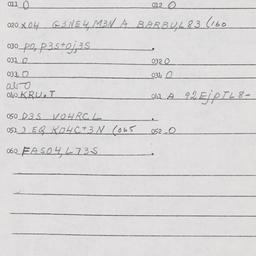 011 0 012 0
020 X04 G3NE4, M3N A BARBU, L83 (160
030 p0, p3s+0j3S .
031 0 032 0
033 0 034 0
040 KRU.T 041 A 92EjpTL8-
050 D3S V04RCL .
051 J EQ K04C+3N (065 052 0
060 FAS04, L73S .